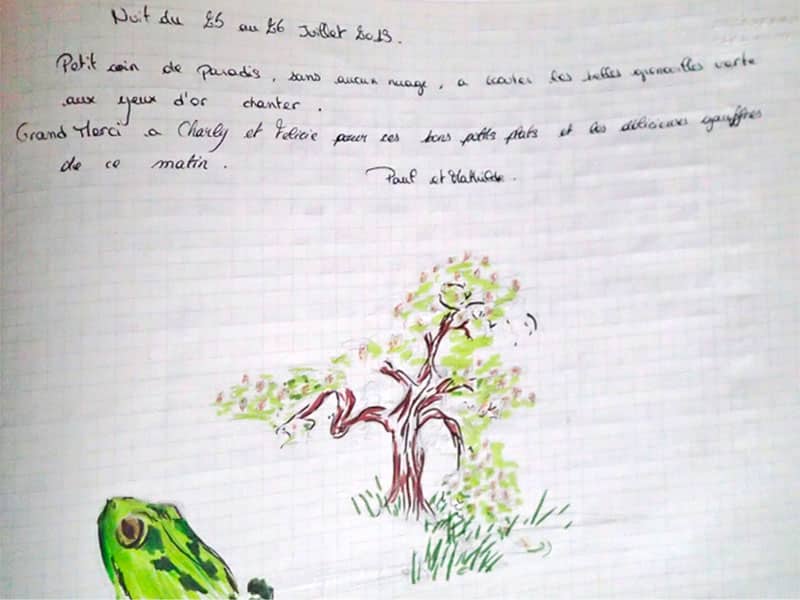 Nuit du 25 au 26 Juillet 2013.
Petit coin de Paradis, sans aucun nuage, a écouter les belles grenouilles verte
aux yeux d'or chanter.
Grand Merci a Charly et Felicie pour ces bons petits plats et les délicieuses gauffres
de ce matin.
Paul et Mathilde.